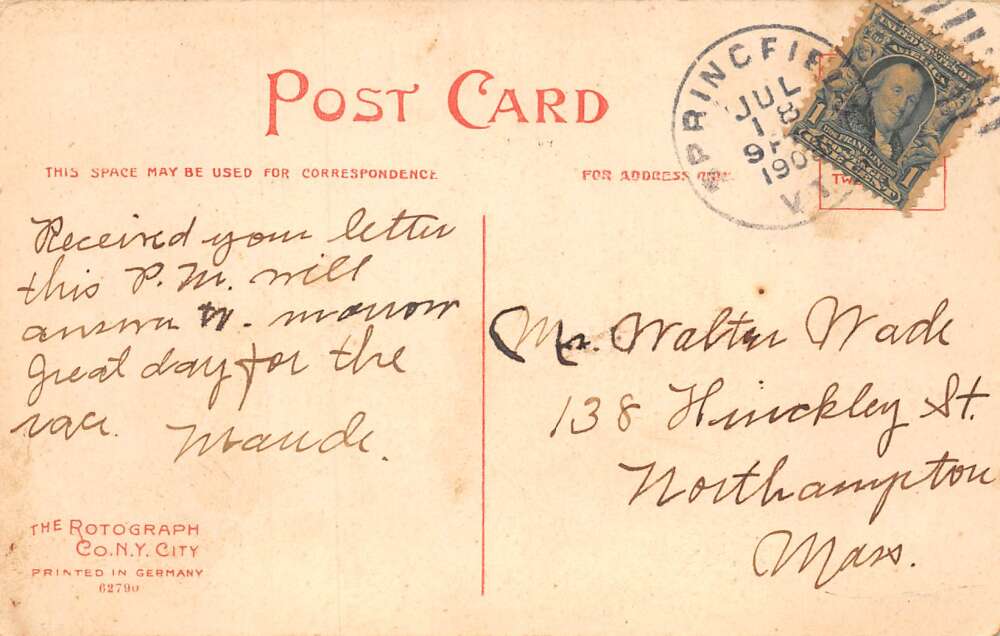 POST CARD
THIS SPACE MAY BE USED FOR CORRESPONDENCE
FOR ADDRESS ONLY.
SPRINGFIELD
JUL
18
VT.
UNITED STATES OF
AMERICA
1
1
Received your letter
this P.M. will
answer to-morrow
Great day for the
race.
Maude.
Mr. Walter Wade
138 Hinckley St.
Northampton
Mass.
THE ROTOGRAPH
CO. N.Y. CITY
PRINTED IN GERMANY
62790